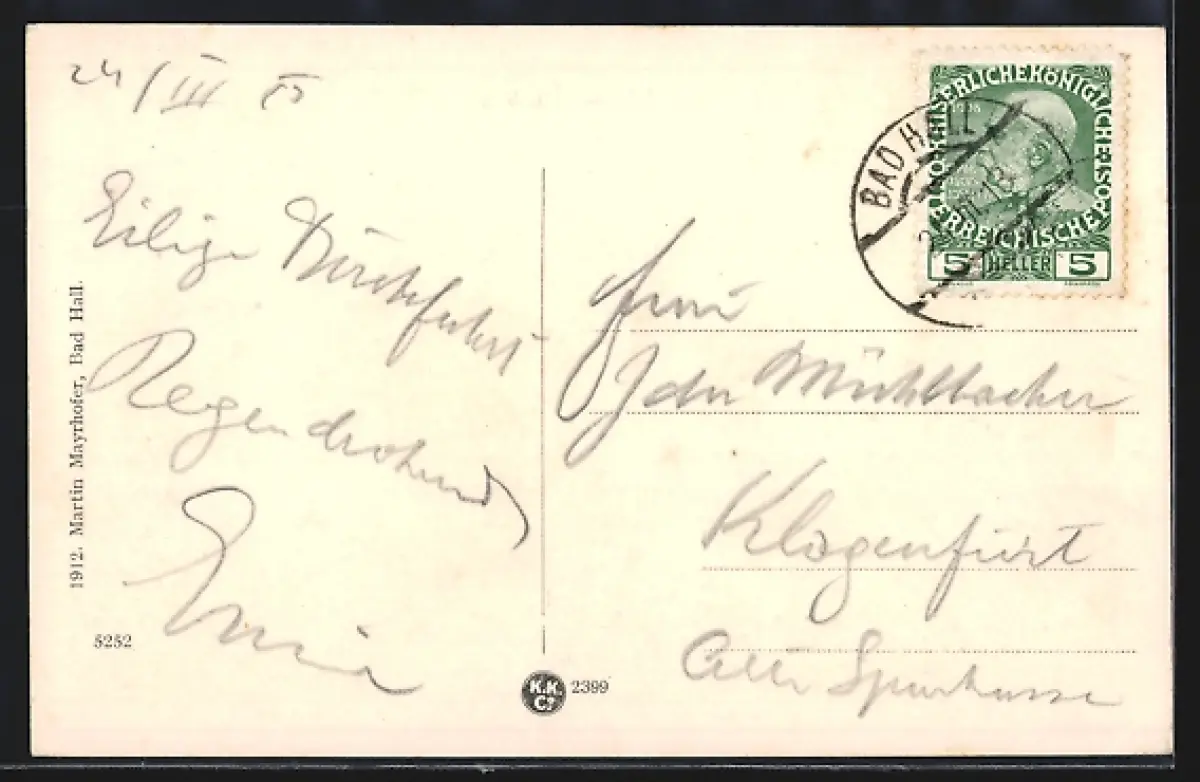 24/III
Eilige Durchfahrt
Regendrohend
Frau
Ida Mühlbacher
Klagenfurt
Alte Sparkasse
1912. Martin Mayrhofer, Bad Hall.
5252
K.K.
2399
KAISERLICHE KÖNIGLICHE
ÖSTERREICHISCHE POST
1908
5 HELLER 5
BAD HALL